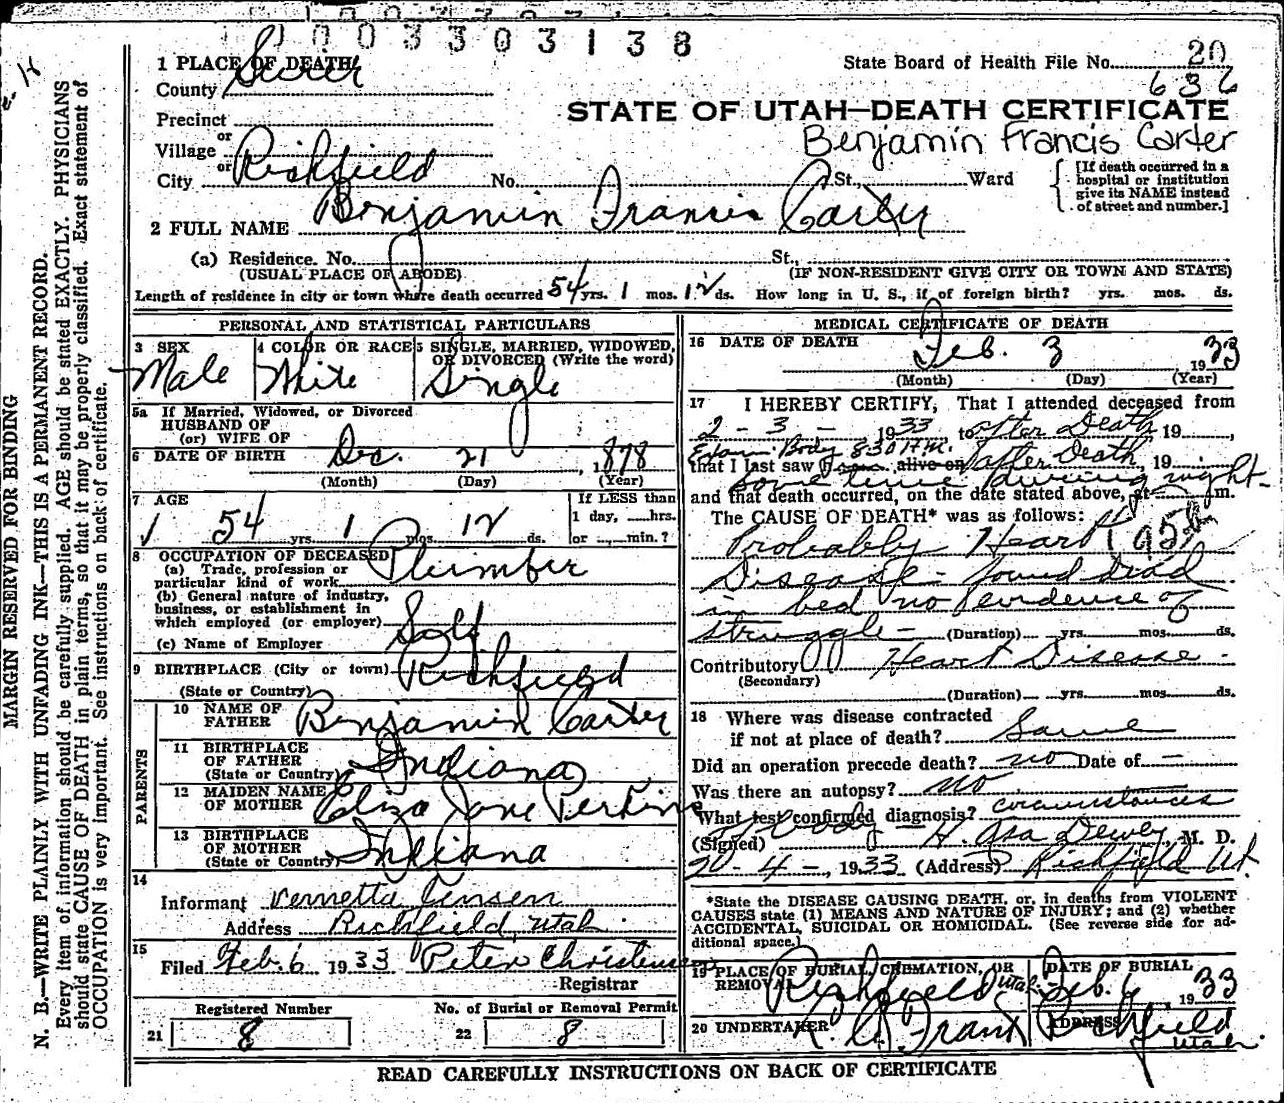 1003303138
1 PLACE OF DEATH
County Sevier
State Board of Health File No. 20
636
Precinct
or
STATE OF UTAH—DEATH CERTIFICATE
Benjamin Francis Carter
Village
or
City Richfield No. St. Ward
[If death occurred in a
hospital or institution
give its NAME instead
of street and number.]
2 FULL NAME Benjamin Francis Carter
(a) Residence. No. St.,
(USUAL PLACE OF ABODE) (IF NON-RESIDENT GIVE CITY OR TOWN AND STATE)
Length of residence in city or town where death occurred 54 yrs. 1 mos. 12 ds. How long in U. S., if of foreign birth? yrs. mos. ds.
PERSONAL AND STATISTICAL PARTICULARS
3 SEX 4 COLOR OR RACE 5 SINGLE, MARRIED, WIDOWED,
OR DIVORCED (Write the word)
Male White Single
5a If Married, Widowed, or Divorced
HUSBAND OF
(or) WIFE OF
6 DATE OF BIRTH Dec. 21, 1878
(Month) (Day) (Year)
7 AGE If LESS than
54 yrs. 1 mos. 12 ds. 1 day, hrs.
or min.?
8 OCCUPATION OF DECEASED
(a) Trade, profession or
particular kind of work Plumber
(b) General nature of industry,
business, or establishment in
which employed (or employer) Self
(c) Name of Employer
9 BIRTHPLACE (City or town) Richfield
(State or Country)
PARENTS
10 NAME OF
FATHER Benjamin Carter
11 BIRTHPLACE
OF FATHER
(State or Country) Indiana
12 MAIDEN NAME
OF MOTHER Eliza Jane Perkins
13 BIRTHPLACE
OF MOTHER
(State or Country) Indiana
14
Informant Vennetta Jensen
Address Richfield, Utah
15
Filed Feb. 6 1933 Peter Christensen
Registrar
Registered Number No. of Burial or Removal Permit
21 8 22 8
MEDICAL CERTIFICATE OF DEATH
16 DATE OF DEATH Feb. 3 1933
(Month) (Day) (Year)
17 I HEREBY CERTIFY, That I attended deceased from
2 - 3 - 1933 to after Death 19 ,
Exam. Body 8:30 A.M.
that I last saw h alive on after Death, 19
some time during night
and that death occurred, on the date stated above, at m.
The CAUSE OF DEATH* was as follows:
Probably Heart 95b
Disease - found dead
in bed no evidence of
struggle - (Duration) yrs. mos. ds.
Contributory Heart Disease.
(Secondary)
(Duration) yrs. mos. ds.
18 Where was disease contracted
if not at place of death? Same
Did an operation precede death? no Date of —
Was there an autopsy? no
What test confirmed diagnosis? circumstances
of body
(Signed) H. Asa Dewey M. D.
4 -, 1933 (Address) Richfield Ut.
*State the DISEASE CAUSING DEATH, or, in deaths from VIOLENT
CAUSES state (1) MEANS AND NATURE OF INJURY; and (2) whether
ACCIDENTAL, SUICIDAL OR HOMICIDAL. (See reverse side for ad-
ditional space.)
19 PLACE OF BURIAL, CREMATION, OR
REMOVAL Richfield Utah
DATE OF BURIAL
Feb. 6, 1933
20 UNDERTAKER ADDRESS
Richfield
Utah.
READ CAREFULLY INSTRUCTIONS ON BACK OF CERTIFICATE
MARGIN RESERVED FOR BINDING
N. B.—WRITE PLAINLY WITH UNFADING INK—THIS IS A PERMANENT RECORD.
Every item of information should be carefully supplied. AGE should be stated EXACTLY. PHYSICIANS
should state CAUSE OF DEATH in plain terms, so that it may be properly classified. Exact statement of
OCCUPATION is very important. See instructions on back of certificate.